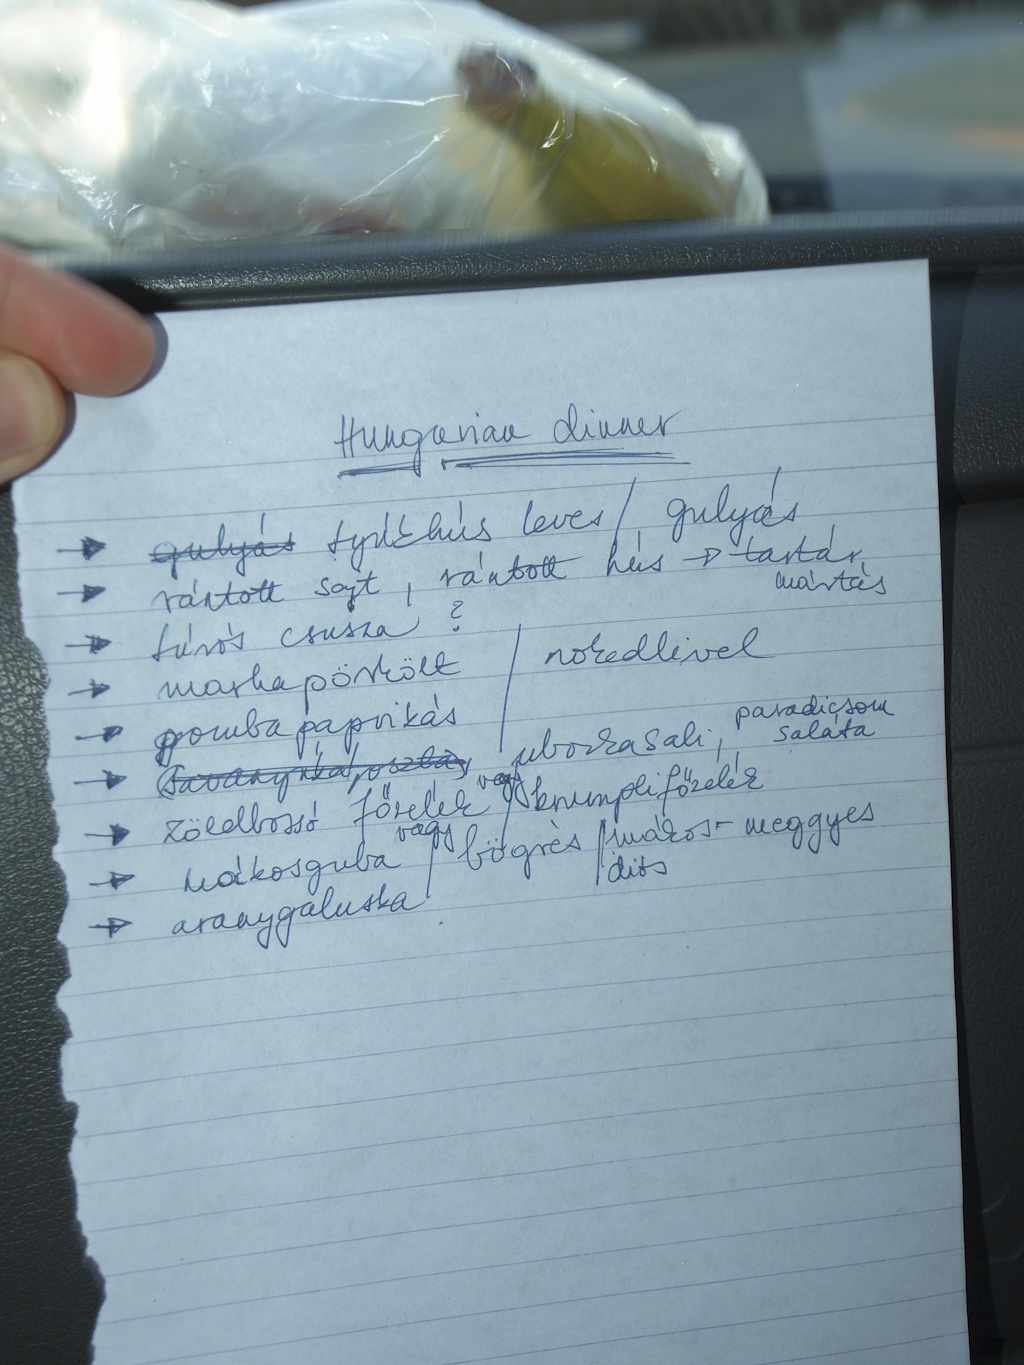 Hungarian dinner
gulyás tyúkhús leves / gulyás
rántott sajt, rántott hús → tartár
mártás
túrós csusza ?
marhapörkölt / nokedlivel
gombapaprikás
uborkasali, paradicsom
saláta
zöldborsó főzelék vagy krumplifőzelék
mákosguba vagy / bögrés / mákos- meggyes
diós
aranygaluska